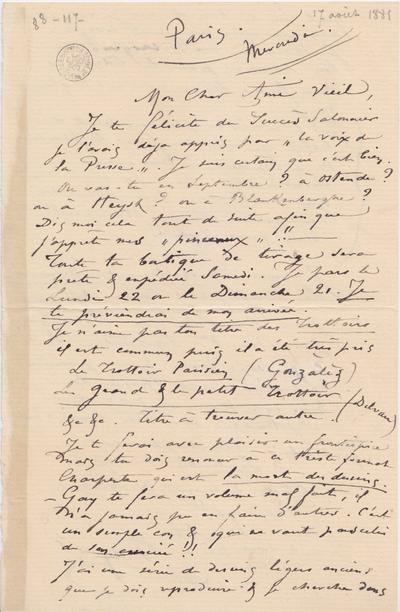 88 - 117 -
17 août 1881
Paris.
Mercredi.
Mon Cher Ami Vieil,
Je te félicite du Succès Salonnier
je l'avais déja appris par "la voix de
la Presse". Je suis certain que c'est bien.
Où vas-tu en Septembre? à Ostende?
ou à Heyst? ou à Blankenberghe?
Dis moi cela tout de suite afin que
j'apprête mes "pinceaux"!!
Toute ta boutique de tirage sera
prête & expédiée Samedi. Je pars le
Lundi 22 ou le Dimanche 21. Je
te préviendrai de mon arrivée.
Je n'aime pas ton titre des Trottoirs
il est commun puis il a été très pris
Le Trottoir Parisien (Gonzalès)
Les Grand & le petit Trottoir (Delvau)
&c &c. titre à trouver autre.
Je te ferai avec plaisir un frontispice
mais tu dois renoncer à ce triste
Charpentier qui est la mort des dessins.
- Gay te fera un volume mal fait, il
n'a jamais pu en faire d'autres. C'est
un simple con & qui ne vaut pas
de
J'ai une série de dessins légers anciens
que je dois reproduire & je cherche dans